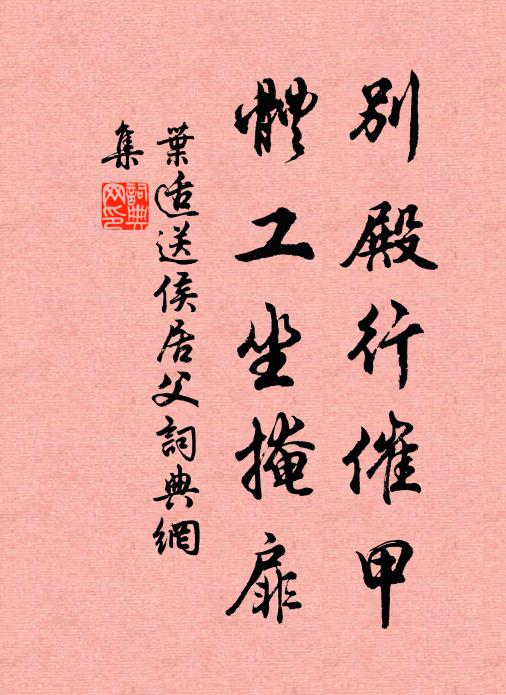 別殿行催甲
體工坐掩扉
葉適送侯居父詞典網
集
詞典網印